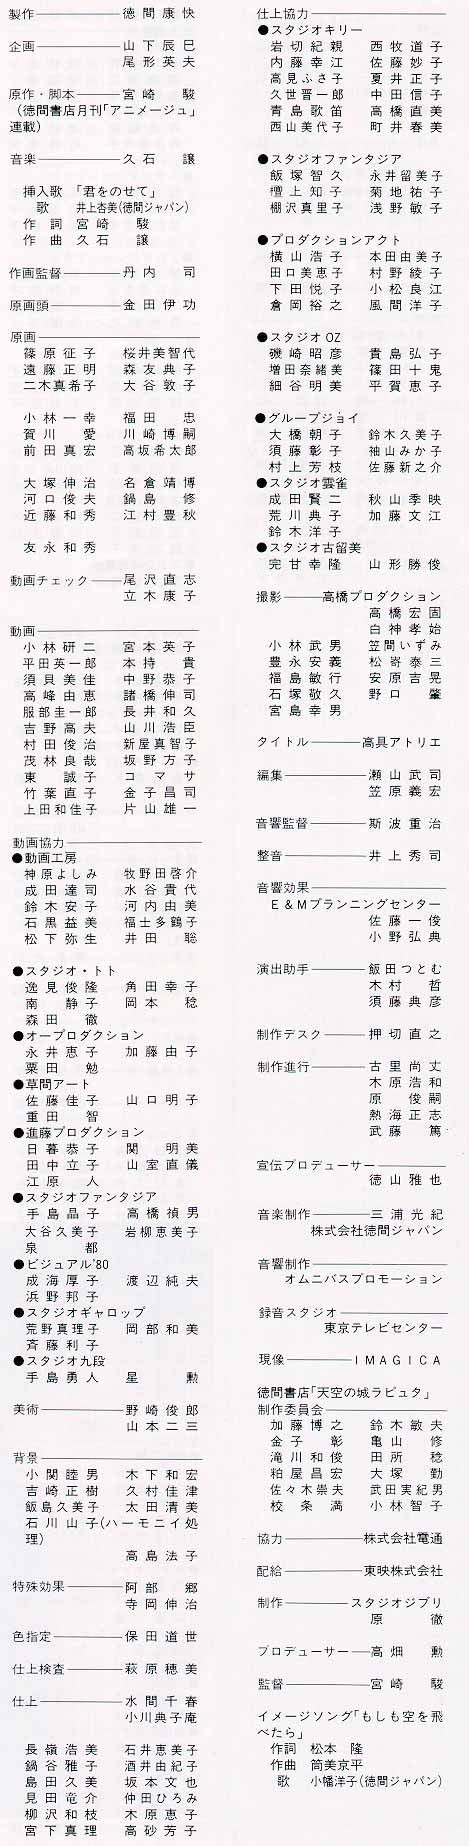 製作 徳間康快
企画 山下辰巳
尾形英夫
原作・脚本 宮崎駿
(徳間書店月刊「アニメージュ」
連載)
音楽 久石譲
挿入歌 「君をのせて」
歌 井上杏美(徳間ジャパン)
作詞 宮崎駿
作曲 久石譲
作画監督 丹内司
原画頭 金田伊功
原画
篠原征子 桜井美智代
遠藤正明 森友典子
二木真希子 大谷敦子
小林一幸 福田忠
賀川愛 川崎博嗣
前田真宏 高坂希太郎
大塚伸治 名倉靖博
河口俊夫 鍋島修
近藤和秀 江村豊秋
友永和秀
動画チェック 尾沢直志
立木康子
動画
小林研二 宮本英子
平田英一郎 本持貴
須貝美佳 中野恭子
高峰由恵 諸橋伸司
服部圭一郎 長井和久
吉野高夫 山川浩臣
村田俊治 新屋真智子
茂林良哉 坂野方子
東誠子 コマサ
竹葉直子 金子昌司
上田和佳子 片山雄一
動画協力
●動画工房
神原よしみ 牧野田啓介
成田達司 水谷貴代
鈴木安子 河内由美
石黒益美 福士多鶴子
松下弥生 井田聡
●スタジオ・トト
逸見俊隆 角田幸子
南静子 岡本稔
森田徹
●オープロダクション
永井恵子 加藤由子
粟田勉
●草間アート
佐藤佳子 山口明子
重田智
●進藤プロダクション
日暮恭子 関明美
田中立子 山室直儀
江原人
●スタジオファンタジア
手島晶子 高橋禎男
大谷久美子 岩柳恵美子
泉都
●ビジュアル'80
成海厚子 渡辺純夫
浜野邦子
●スタジオギャロップ
荒野真理子 岡部和美
斉藤利子
●スタジオ九段
手島勇人 星勲
美術 野崎俊郎
山本二三
背景
小関睦男 木下和宏
吉崎正樹 久村佳津
飯島久美子 太田清美
石川山子(ハーモニイ処
理)
高島法子
特殊効果 阿部郷
寺岡伸治
色指定 保田道世
仕上検査 萩原穂美
仕上 水間千春
小川典子庵
長嶺浩美 石井恵美子
鍋谷雅子 酒井由紀子
島田久美 坂本文也
見田竜介 仲田ひろみ
柳沢和枝 木原恵子
宮下真理 高砂芳子
仕上協力
●スタジオキリー
岩切紀親 西牧道子
内藤幸江 佐藤妙子
高見ふさ子 夏井正子
久世晋一郎 中田信子
青島歌笛 高橋直美
西山美代子 町井春美
●スタジオファンタジア
飯塚智久 永井留美子
檀上知子 菊地祐子
棚沢真里子 浅野敏子
●プロダクションアクト
横山浩子 本田由美子
田口美恵子 村野綾子
下田悦子 小松良江
倉岡裕之 風間洋子
●スタジオOZ
磯崎昭彦 貴島弘子
増田奈緒美 篠田十鬼
細谷明美 平賀恵子
●グループジョイ
大橋朝子 鈴木久美子
須藤彰子 袖山みか子
村上芳枝 佐藤新之介
●スタジオ雲雀
成田賢二 秋山季映
荒川典子 加藤文江
鈴木洋子
●スタジオ古留美
完甘幸隆 山形勝俊
撮影 高橋プロダクション
高橋宏固
白神孝始
小林武男 笠間いずみ
豊永安義 松嵜泰三
福島敏行 安原吉晃
石塚敬久 野口肇
宮島幸男
タイトル 高具アトリエ
編集 瀬山武司
笠原義宏
音響監督 斯波重治
整音 井上秀司
音響効果
E&Mプランニングセンター
佐藤一俊
小野弘典
演出助手 飯田つとむ
木村哲
須藤典彦
制作デスク 押切直之
制作進行 古里尚丈
木原浩和
原俊嗣
熱海正志
武藤篤
宣伝プロデューサー
徳山雅也
音楽制作 三浦光紀
株式会社徳間ジャパン
音響制作
オムニバスプロモーション
録音スタジオ
東京テレビセンター
現像 IMAGICA
徳間書店「天空の城ラピュタ」
制作委員会
加藤博之 鈴木敏夫
金子彰 亀山修
滝川和俊 田所稔
粕屋昌宏 大塚勤
佐々木崇夫 武田実紀男
校條満 小林智子
協力 株式会社電通
配給 東映株式会社
制作 スタジオジブリ
原徹
プロデューサー 高畑勲
監督 宮崎駿
イメージソング「もしも空を飛
べたら」
作詞 松本隆
作曲 筒美京平
歌 小幡洋子(徳間ジャパン)